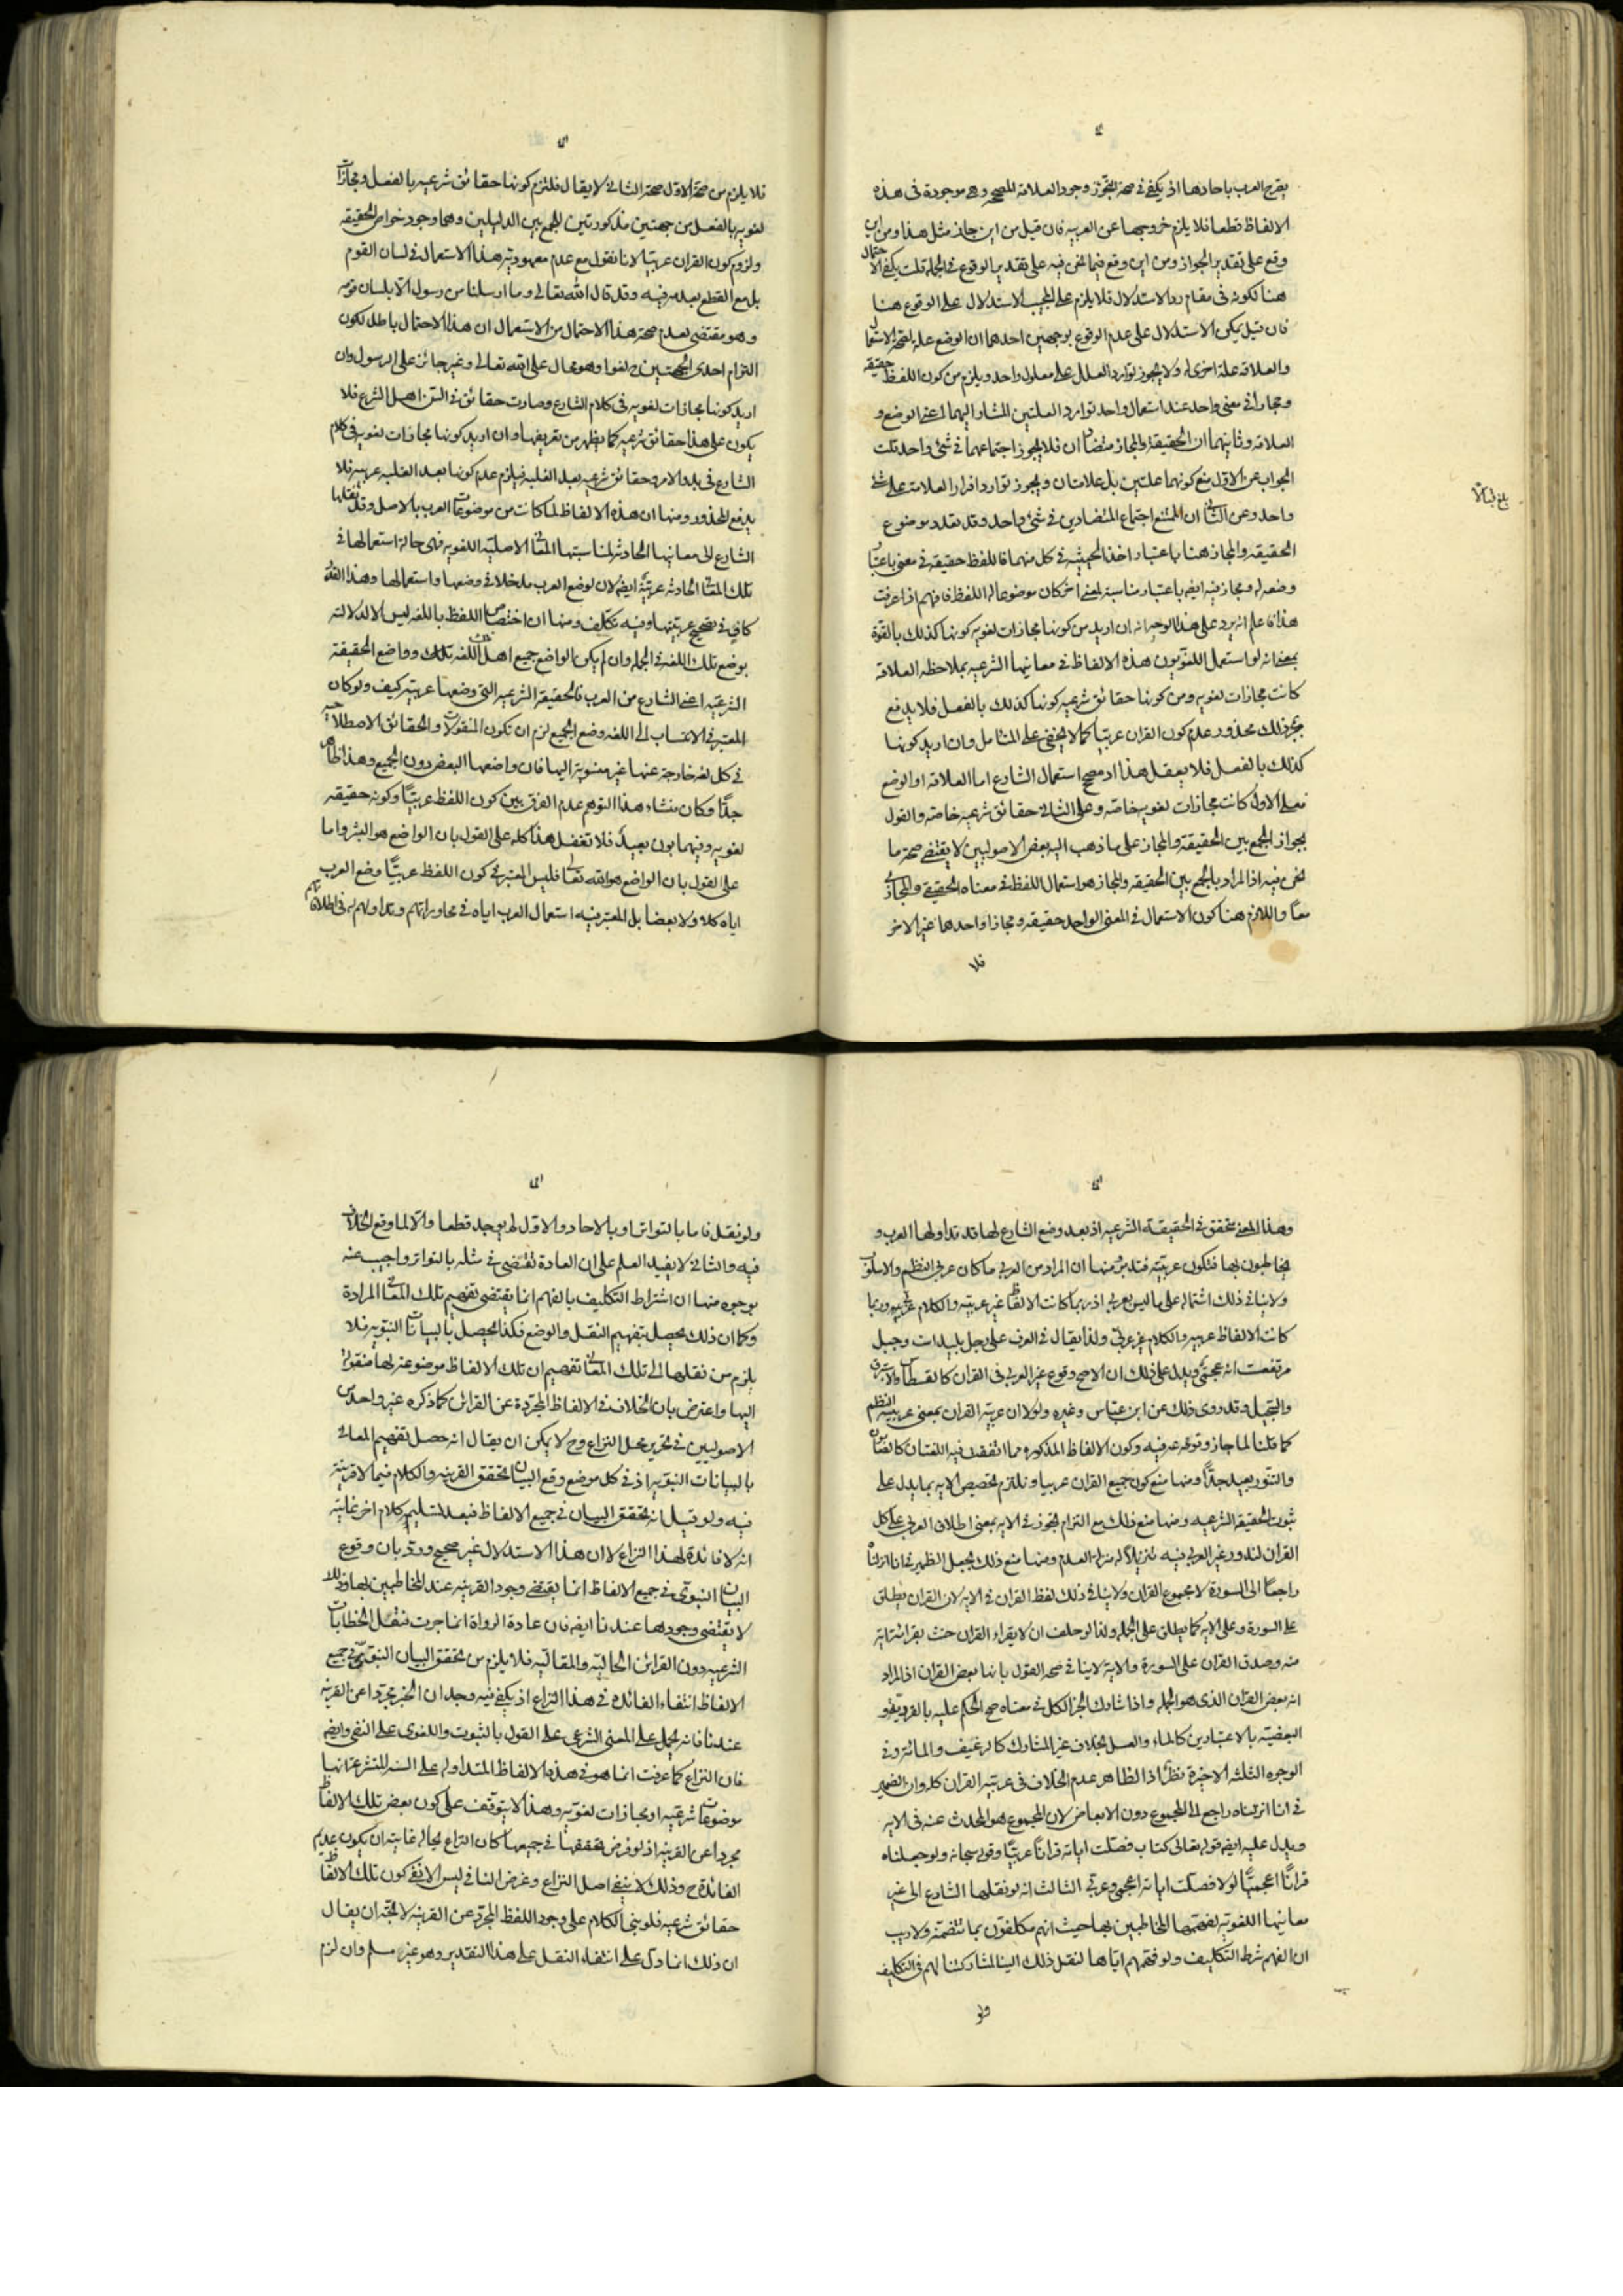 يصرح العرب باحادها اذ يكفى فى صحة التجوز وجود العلاقة المصححة وهى موجودة فى هذه
الالفاظ قطعا فلا يلزم خروجها عن العربيه فان قيل من اين جاز مثل هذا ومن اين
وقع على تقدير الجواز ومن اين وقع فيما نحن فيه على تقدير الوقوع فى الجمله قلت يكفى الاحتمال
هنا لكونه فى مقام رد الاستدلال فلا يلزم على المجيب الاستدلال على الوقوع هنا
فان قيل يمكن الاستدلال على عدم الوقوع بوجهين احدهما ان الوضع علة لصحة الاستعمال
والعلاقه علة اخرى له ولا يجوز توارد العلل على معلول واحد ويلزم من كون اللفظ حقيقه
ومجازا فى معنى واحد عند استعمال واحد توارد العلتين المشار اليهما اعنى الوضع و
العلاقه وثانيهما ان الحقيقة والمجاز متضادان فلا يجوز اجتماعهما فى شئ واحد قلت
الجواب عن الاول منع كونهما علتين بل علامتان ويجوز توارد افراد العلامة على شئ
واحد وعن الثانى ان الممتنع اجتماع المتضادين فى شئ واحد وقد تعدد موضوع
الحقيقه والمجاز هنا باعتبار اخذ الحيثيه فى كل منهما فاللفظ حقيقه فى معنى باعتبار
وضعه له ومجاز فيه ايضا باعتبار مناسبة لمعنى اخر كان موضوعا له اللفظ فافهم اذا عرفت
هذا فاعلم انه يرد على هذا الوجه انه ان اريد من كونها مجازات لغويه كونها كذلك بالقوة
بمعنى انه لو استعمل اللغويون هذه الالفاظ فى معانيها الشرعيه بملاحظه العلاقه
كانت مجازات لغويه ومن كونها حقائق شرعيه كونها كذلك بالفعل فلا يدفع
بمجرد ذلك محذور عدم كون القران عربيا كما لا يخفى على المتامل وان اريد كونها
كذلك بالفعل فلا يعقل هذا اذ مصحح استعمال الشارع اما العلاقه او الوضع
فعلى الاول كانت مجازات لغويه خاصة وعلى الثانى حقائق شرعيه خاصة والقول
بجواز الجمع بين الحقيقة والمجاز على ما ذهب اليه بعض الاصوليين لا يقتضى صحة ما
نحن فيه اذ المراد بالجمع بين الحقيقه والمجاز هو استعمال اللفظ فى معناه الحقيقى والمجازى
معا واللازم هنا كون الاستعمال فى المعنى الواحد حقيقه ومجازا واحدها غير الاخر
فلا
فلا يلزم من صحة الاول صحة الثانى لا يقال فلتزم كونها حقائق شرعيه بالفعل ومجازات
لغويه بالفعل من جهتين مذكورتين للجمع بين الدليلين وهما وجود خواص الحقيقه
ولزوم كون القران عربيا لانا نقول مع عدم معهودية هذا الاستعمال فى لسان القوم
بل مع القطع بعدمه فيه وقد قال الله تعالى وما ارسلنا من رسول الا بلسان قومه
وهو مقتضى لعدم صحة هذا الاحتمال من الاستعمال ان هذا الاحتمال باطل لكون
التزام احدى الجهتين ح لغوا وهو محال على الله تعالى وغير جائز على الرسول وان
اريد كونها مجازات لغويه فى كلام الشارع وصارت حقائق فى السن اهل الشرع فلا
يكون على هذا حقائق شرعيه كما يظهر من تعريفها وان اريد كونها مجازات لغويه فى كلام
الشارع فى بدو الامر وحقائق شرعيه بعد الغلبه فيلزم عدم كونها بعد الغلبه عربيه فلا
يدفع المحذور ومنها ان هذه الالفاظ لما كانت من موضوعات العرب بالاصل وقد نقلها
الشارع الى معانيها الحادثه لمناسبتها المعانى الاصليه اللغويه فهى حالة استعمالها فى
تلك المعانى الحادثه عربية ايضا لان لوضع العرب مدخلا فى وضعها واستعمالها وهذا القدر
كاف فى تصحيح عربيتها وفيه تكلف ومنها ان اختصاص اللفظ باللغه ليس الا لدلالته
بوضع تلك اللغة فى الجمله وان لم يكن الواضع جميع اهل تلك اللغه وواضع الحقيقة
الشرعيه اعنى الشارع من العرب فالحقيقة الشرعيه التى وضعها عربيه كيف ولو كان
المعتبر فى الانتساب الى اللغه وضع الجميع لزم ان تكون المنقولات والحقائق الاصطلاحيه
فى كل لغه خارجة عنها غير منسوبة اليها فان واضعها البعض دون الجميع وهذا ظاهر
جدا وكان منشاء هذا التوهم عدم الفرق بين كون اللفظ عربيا وكونه حقيقه
لغويه وبينهما بون بعيد فلا تغفل هذا كله على القول بان الواضع هو البشر واما
على القول بان الواضع هو الله تعالى فليس المعتبر فى كون اللفظ عربيا وضع العرب
اياه كلا ولا بعضا بل المعتبر فيه استعمال العرب اياه فى محاوراتهم وتداولهم له فى اطلاقاتهم
وهذا المعنى متحقق فى الحقيقة الشرعيه اذ بعد وضع الشارع لها قد تداولها العرب و
يخاطبون بها فتكون عربيه فتدبر ومنها ان المراد من العربى ما كان عربى النظم والاسلوب
ولا ينافى ذلك اشتماله على ما ليس بعربى اذ ربما كانت الالفاظ غير عربيه والكلام عربيه وربما
كانت الالفاظ عربيه والكلام غير عربى ولذا يقال فى العرف على رجل بليدات وجبل
مرتفعت انه عجمى ويدل على ذلك ان الاصح وقوع غير العربى فى القران كالقسطاس والاستبرق
والسجيل وقد روى ذلك عن ابن عباس وغيره ولولا ان عربية القران بمعنى عربية النظم
كما قلنا لما جاز وقوعه فيه وكون الالفاظ المذكوره مما اتفقت فيه اللغتان كالصابون
والتنور بعيد جدا ومنها منع كون جميع القران عربيا ونلتزم تخصيص الايه بما يدل على
ثبوت الحقيقة الشرعيه ومنها منع ذلك مع التزام تجوز فى الايه بمعنى اطلاق العربى على كل
القران لندور غير العربى فيه تنزيلا له منزلة العدم ومنها منع ذلك بجعل الظهير فى انا انزلناه
راجعا الى السورة لا مجموع القران ولا ينافى ذلك لفظ القران فى الايه لان القران يطلق
على السورة وعلى الايه كما يطلق على الجمله ولذا لو حلف ان لا يقراء القران حنث بقرائة اية
منه وصدق القران على السورة والاية لا ينافى صحة القول بانها بعض القران اذ المراد
انه بعض القران الذى هو الجمله واذا شارك الجزء الكل فى معناه صح الحكم عليه بالفرديه و
البعضيه بالاعتبارين كالماء والعسل بخلاف غير المشارك كالرغيف والمائة وفى
الوجوه الثلثه الاخيرة نظر اذ الظاهر عدم الخلاف فى عربيه القران كله وان الضمير
فى انا انزلناه راجع الى المجموع دون الابعاض لان المجموع هو المحدث عنه فى الايه
ويدل عليه ايضا قوله تعالى كتاب فصلت اياته قرانا عربيا وقوله سبحانه ولو جعلناه
قرانا اعجميا لقالوا لولا فصلت اياته اعجمى وعربى الثالث انه لو نقلها الشارع الى غير
معانيها اللغويه لفهمها المخاطبين بها حيث انهم مكلفون بما تتضمنه ولا ريب
ان الفهم شرط التكليف ولو فهمهم اياها لنقل ذلك الينا لمشاركتنا لهم فى التكليف
ولو
ولو نقل فاما بالتواتر او بالاحاد والاول لم يوجد قطعا والا لما وقع الخلاف
فيه والثانى لا يفيد العلم على ان العادة تقتضى فى مثله بالتواتر واجيب عنه
بوجوه منها ان اشتراط التكليف بالفهم انما يقتضى تفهيم تلك المعانى المرادة
وكما ان ذلك يحصل بتفهيم النقل والوضع فكذا يحصل بالبيانات النبويه فلا
يلزم من نقلها الى تلك المعانى تفهيم ان تلك الالفاظ موضوعه لها منقوله
اليها واعترض بان الخلاف فى الالفاظ المجردة عن القرائن كما ذكره غير واحد من
الاصوليين فى تحرير محل النزاع وح لا يمكن ان يقال انه حصل تفهيم المعانى
بالبيانات النبويه اذ فى كل موضع وقع البيان تحقق القرينه والكلام فيما لا قرينة
فيه ولو قيل انه تحقق البيان فى جميع الالفاظ فبعد تسليمه كلام اخر غايته
انه لا فائدة لهذا النزاع لا ان هذا الاستدلال غير صحيح ورد بان وقوع
البيان النبوى فى جميع الالفاظ انما يقتضى وجود القرينه عند المخاطبين بها وذلك
لا يقتضى وجودها عندنا ايضا فان عادة الرواة انما جرت بنقل الخطابات
الشرعيه دون القرائن الحاليه والمقاليه فلا يلزم من تحقق البيان النبوى فى جميع
الالفاظ انتفاء الفائده فى هذا النزاع اذ يكفى فيه وجدان الخبر مجردا عن القرينه
عندنا فانه يحمل على المعنى الشرعى على القول بالثبوت واللغوى على النفى وايضا
فان النزاع كما عرفت انما هو فى هذه الالفاظ المتداوله على السنه المتشرعة انها
موضوعات شرعيه او مجازات لغويه وهذا لا يتوقف على كون بعض تلك الالفاظ
مجردا عن القرينه اذ لو فرض تحققها فى جميعها كان النزاع بحاله غايته ان يكون عديم
الفائدة ح وذلك لا ينفى اصل النزاع وغرض النافى ليس الا نفى كون تلك الالفاظ
حقائق شرعيه فلو بنى الكلام على وجود اللفظ المجرد عن القرينه لاتجه ان يقال
ان ذلك انما دل على انتفاء النقل على هذا التقدير وهو غير مسلم وان لزم